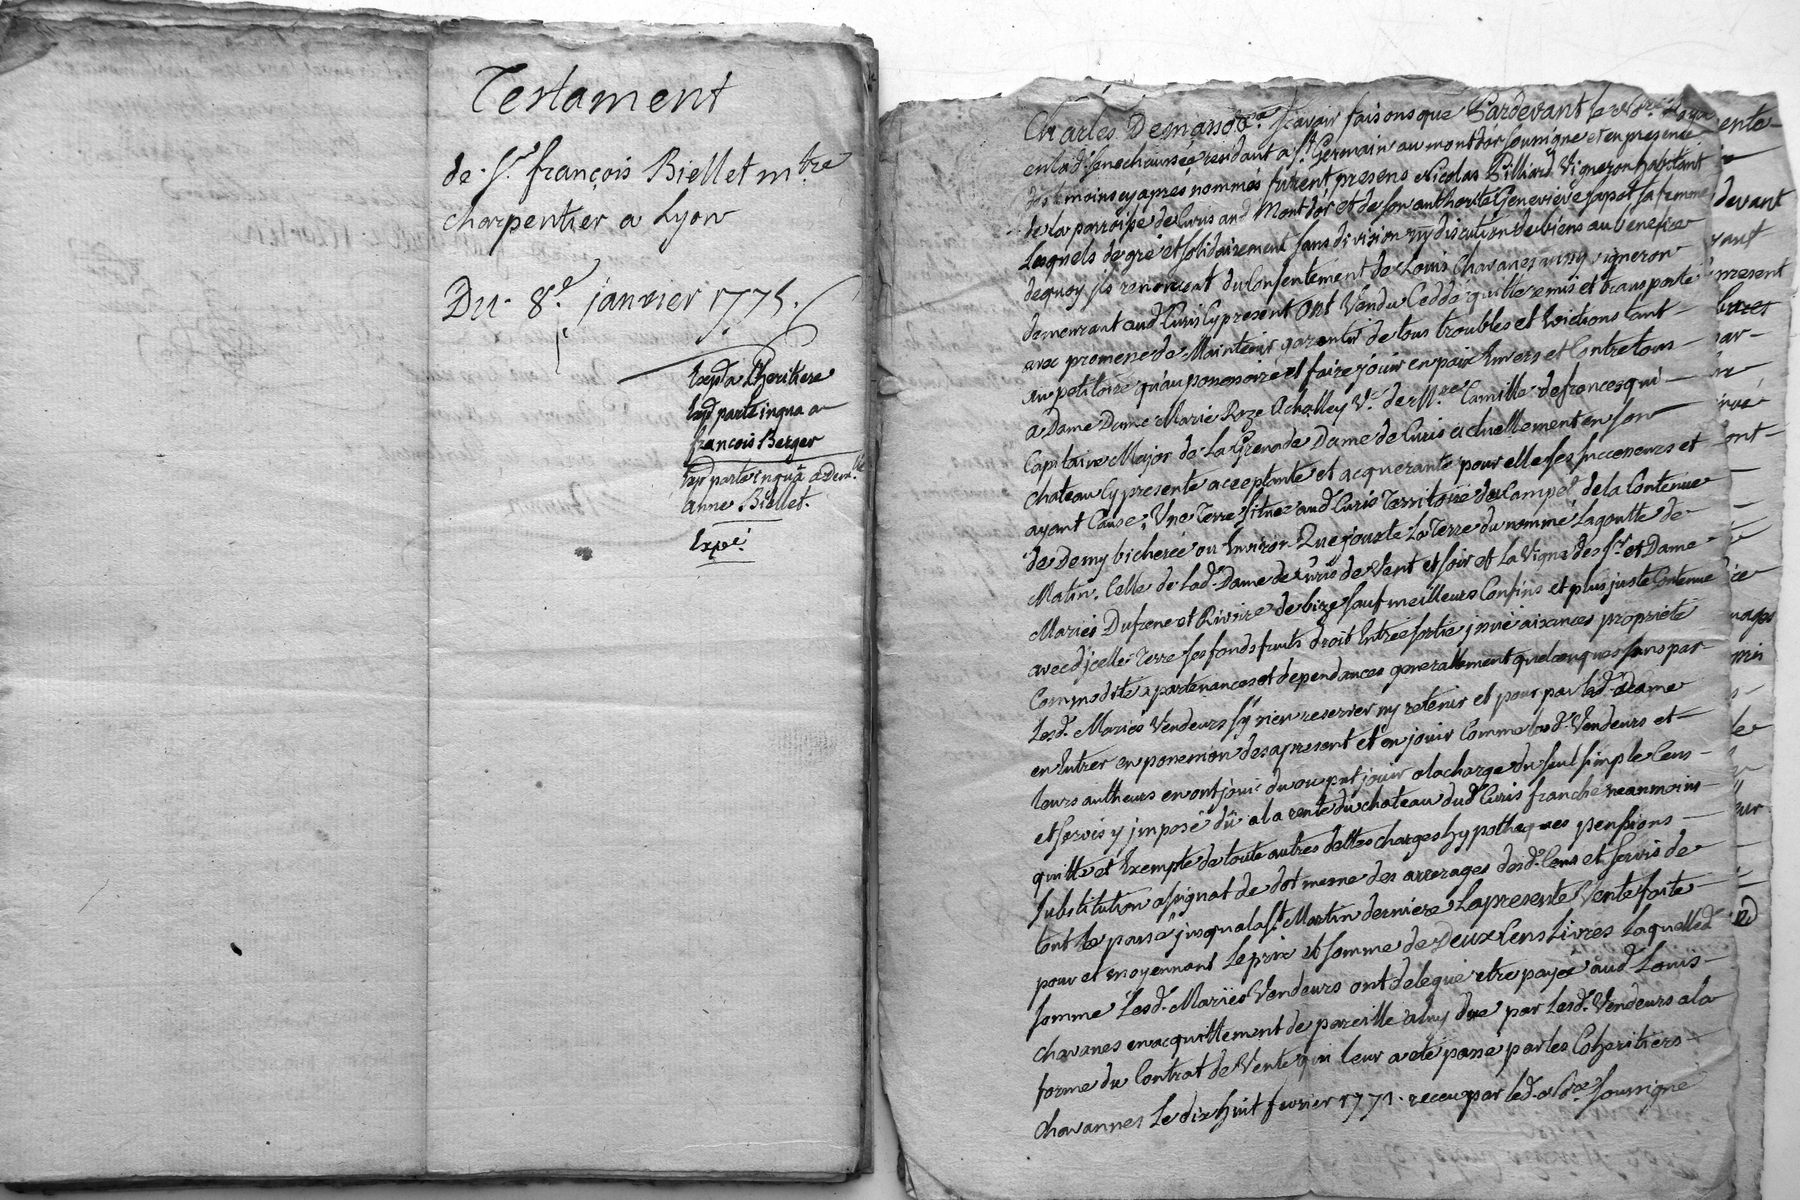 Testament
de Sr. françois Biellet mtre
charpentier a Lyon
Du 8e. janvier 1775.
Expd a Lheritiere
Expd parte inqua a
françois Berger
Expd parte in quâ a Demlle
anne Biellet.
Expé.
Charles Demasso &a. Scavoir faisons que Pardevant le Nore. Royal
en lad. Senechaussée residant a St. Germain au montdor soussigné et en presence
des temoins cy aprés nommés furent presens Nicolas Billiard Vigneron habitant
de la parroisse de Curis aud Montdor et de son authorité Genevieve Sapot sa femme
Lesquels de gré et solidairement sans division ny discution de biens au benefice
dequoy ils renoncent du Consentement de Louis Chavanes aussy vigneron
demeurant aud Curis Cy present ont Vendu Ceddé quitté remis et transporté
avec promesse de Maintenir garentir de tous troubles et Evictions tant
au petitoire qu'au possessoire et faire jouir en paix Envers et Contre tous
a Dame Dame Marie Roze Achalley Ve. de Mre. Camille defrancesqui
Capitaine Major de La Grenade Dame de Curis actuellement en son
chateau Cy presente acceptante et acquerante pour elle ses successeurs et
ayant Cause, Une Terre située aud Curis Territoire du Campet de la Contenue
de Demy bicherée ou Environ Que jouxte La Terre du nommé Lagoutte de
Matin, Celle de Lad. Dame de Curis de Vent et soir et La Vigne des Sr. et Dame
Mariés Dufrene et Riviere de bize sauf meilleurs Confins et plus juste Contenue
avec d'jcelle Terre ses fonds fruits droit Entrée sortie jssue aisances proprieté
Commodités apartenances et dependances generallement quelconques sans par
Lesd. Mariés Vendeurs s'y rien reserver ny retenir et pour par lad. dame
en Entrer en possession des apresent et en jouir Comme lesd. Vendeurs et
leurs autheurs en ont joui du ou put jouir a la charge du seul simple Cens
et servis y jmposé dû a la rente du chateau dud Curis franche neanmoins
quitte et Exempte de toute autres dettes charges hypotheques pensions
substitution assignat de dot mesme des arrerages desd. Cens et servis de
tout le passé jusqu'a la St. Martin derniere La presente Vente faite
pour et moyennant Le prix et somme de Deux Cens Livres Laquelled
somme Lesd. Mariés Vendeurs ont delegué etre payée aud Louis
chavanes en acquittement de pareille a luy due par Lesd. Vendeurs a la
forme du Contrat de Vente qui leur a eté passé par les Coheritiers
Chavannes Le dix huit fevrier 1771. receu par led. Nore. soussigné
ente
devant
yant
present
par
ont
mis
le
eur